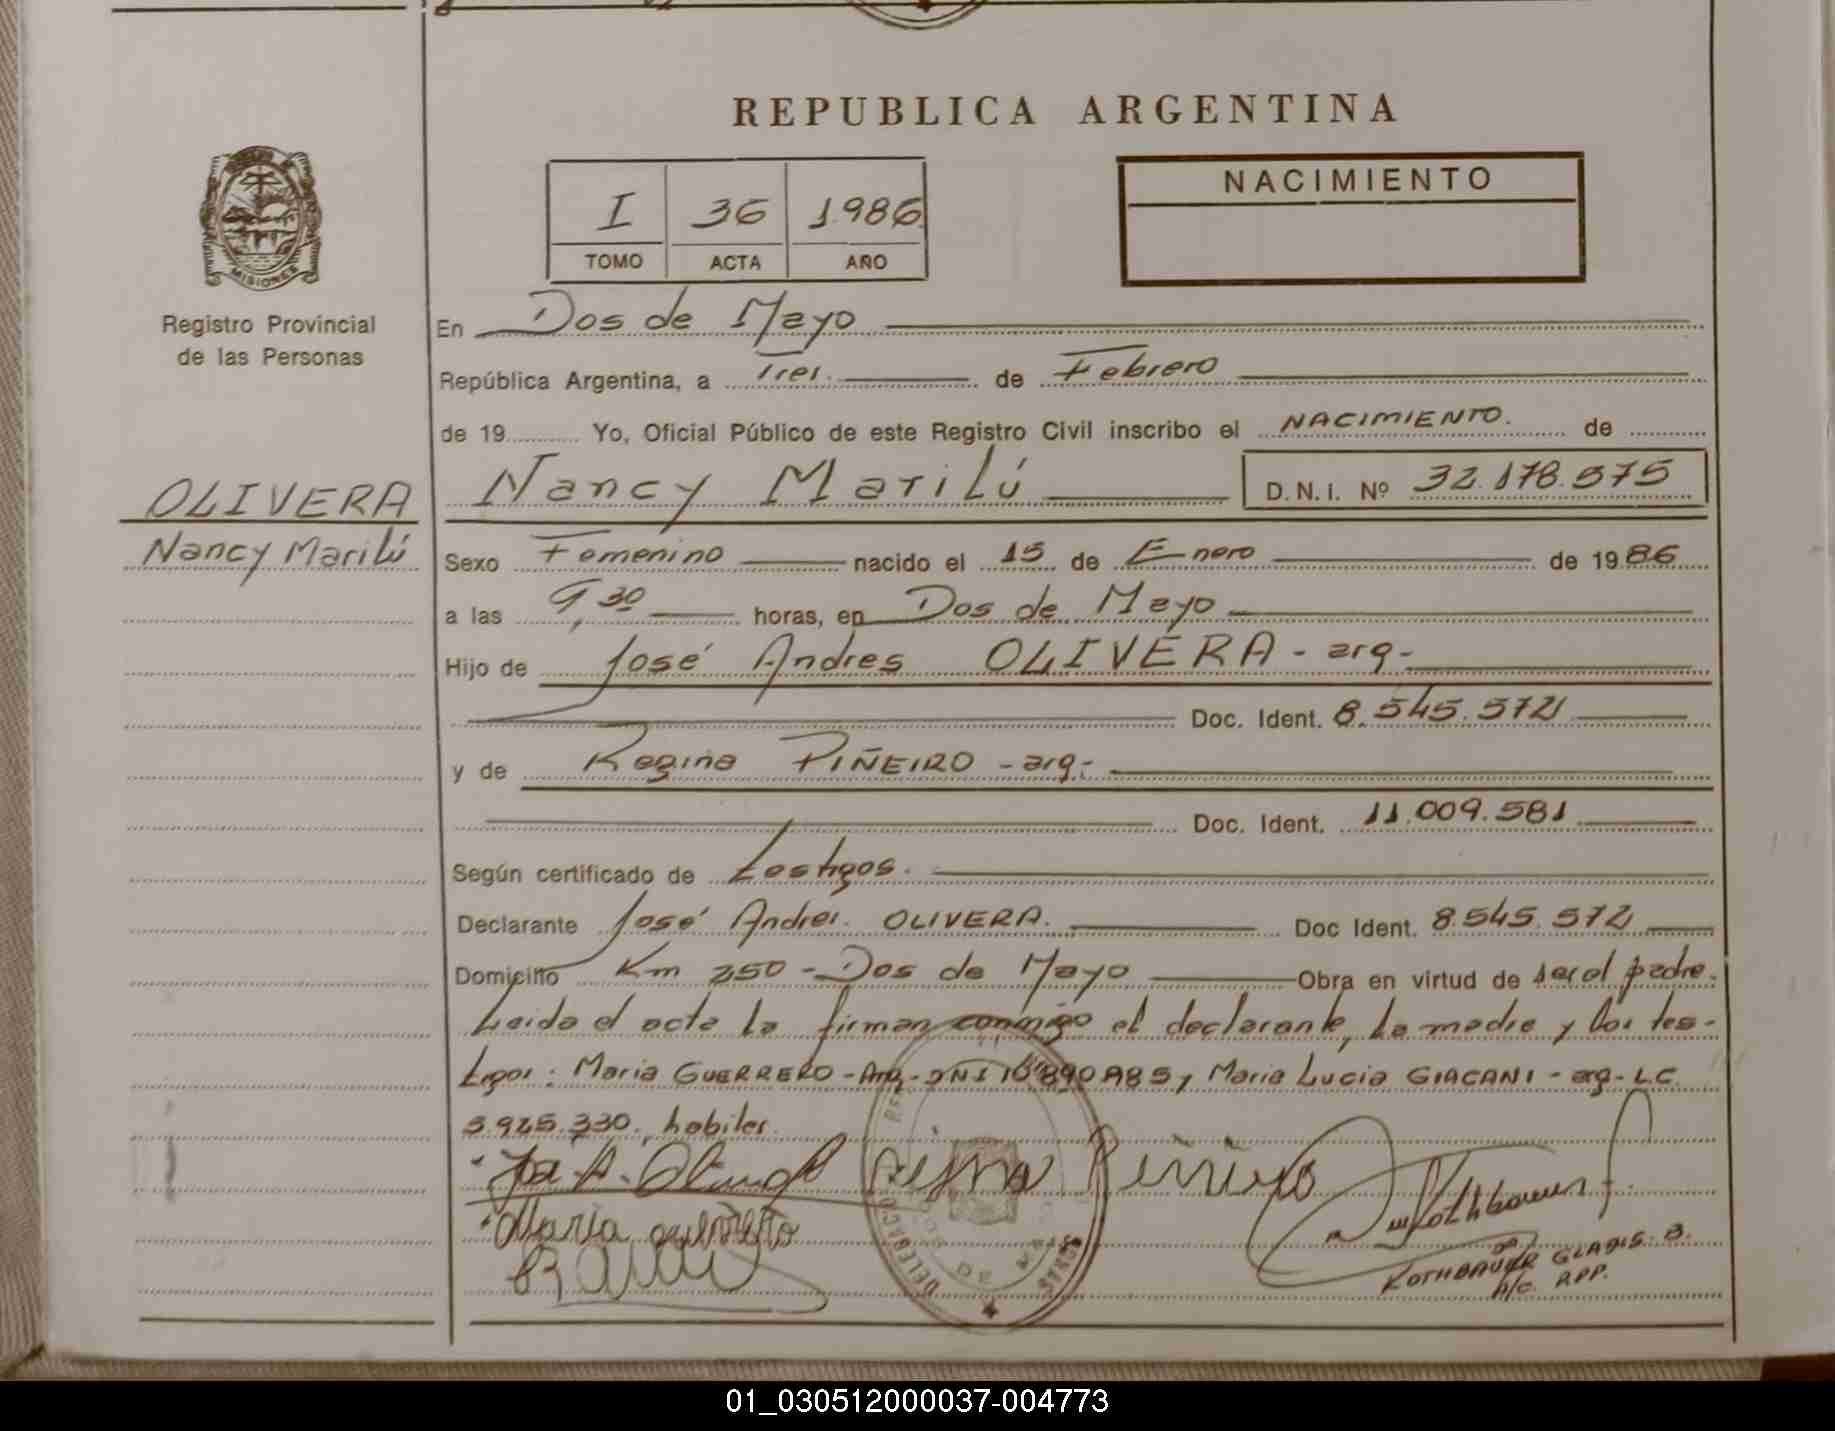 REPUBLICA ARGENTINA
NACIMIENTO
I 36 1986
TOMO ACTA AÑO
MISIONES
Registro Provincial
de las Personas
OLIVERA
Nancy Marilú
En Dos de Mayo
República Argentina, a Tres. de Febrero
de 19 Yo, Oficial Público de este Registro Civil inscribo el NACIMIENTO. de
Nancy Marilú D.N.I. Nº 32.178.575
Sexo Femenino nacido el 15 de Enero de 1986
a las 9,30 horas, en Dos de Mayo
Hijo de José Andres OLIVERA - arg-
Doc. Ident. 8.545.572
y de Regina PIÑEIRO - arg-
Doc. Ident. 11.009.581
Según certificado de Testigos.
Declarante José Andres. OLIVERA. Doc Ident. 8.545.572
Domicilio Km 250 - Dos de Mayo Obra en virtud de ser el padre.
Leida el acta la firman conmigo el declarante, la madre y los tes-
tigos: Maria GUERRERO - Arg - DNI y Maria Lucia GIACANI - arg - L.C.
5.925.330. habiles.
Maria guerrero
ROTHBAUER GLADIS B.
A/C. RPP.
01_030512000037-004773